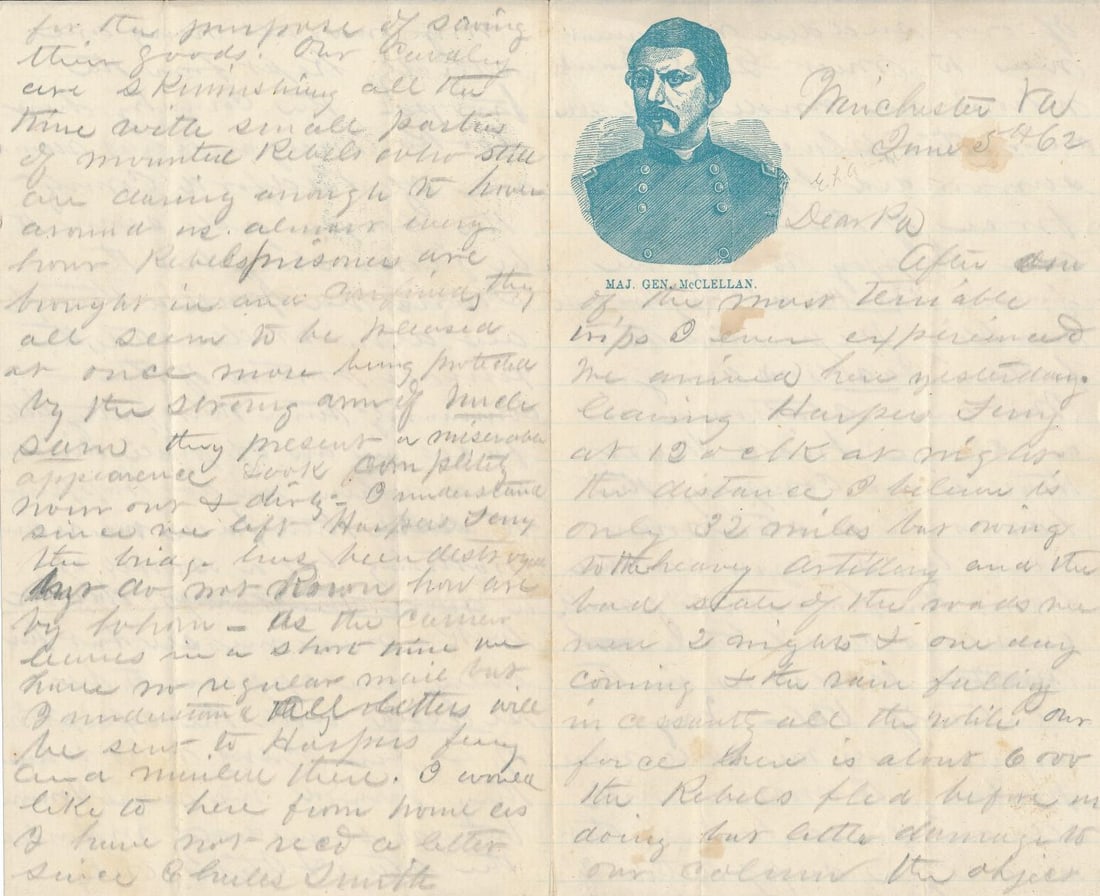 Winchester Va
June 5th 62
E.K.A
Dear Pa
MAJ. GEN. McCLELLAN.
After one
of the most terriable
trips I ever experienced
We arrived here yesterday.
leaving Harpers Ferry
at 12 o clk at night
the distance I believe is
only 32 miles but owing
to the heavy Artillery and the
bad state of the roads we
were 2 nights & one day
coming & the rain falling
incessantly all the while our
force here is about 6000
the Rebels fled before us
doing but little damage to
our column the object
for the purpose of saving
their goods. Our Cavalry
are skirmishing all the
time with small parties
of mounted Rebels who still
are daring enough to hover
around us. almost every
hour Rebels prisoners are
brought in and confined, they
all seem to be pleased
at once more being protected
by the strong arm of Uncle
Sam they present a miserable
appearence Look completely
worn out & dirty - I understand
since we left Harpers Ferry
the bridge has been destroyed
but do not know how are
by whom - As the carrier
leaves in a short time we
have no regular mail but
I understand all letters will
be sent to Harpers ferry
and mailed there. I would
like to here from home as
I have not recd a letter
since Charles Smith